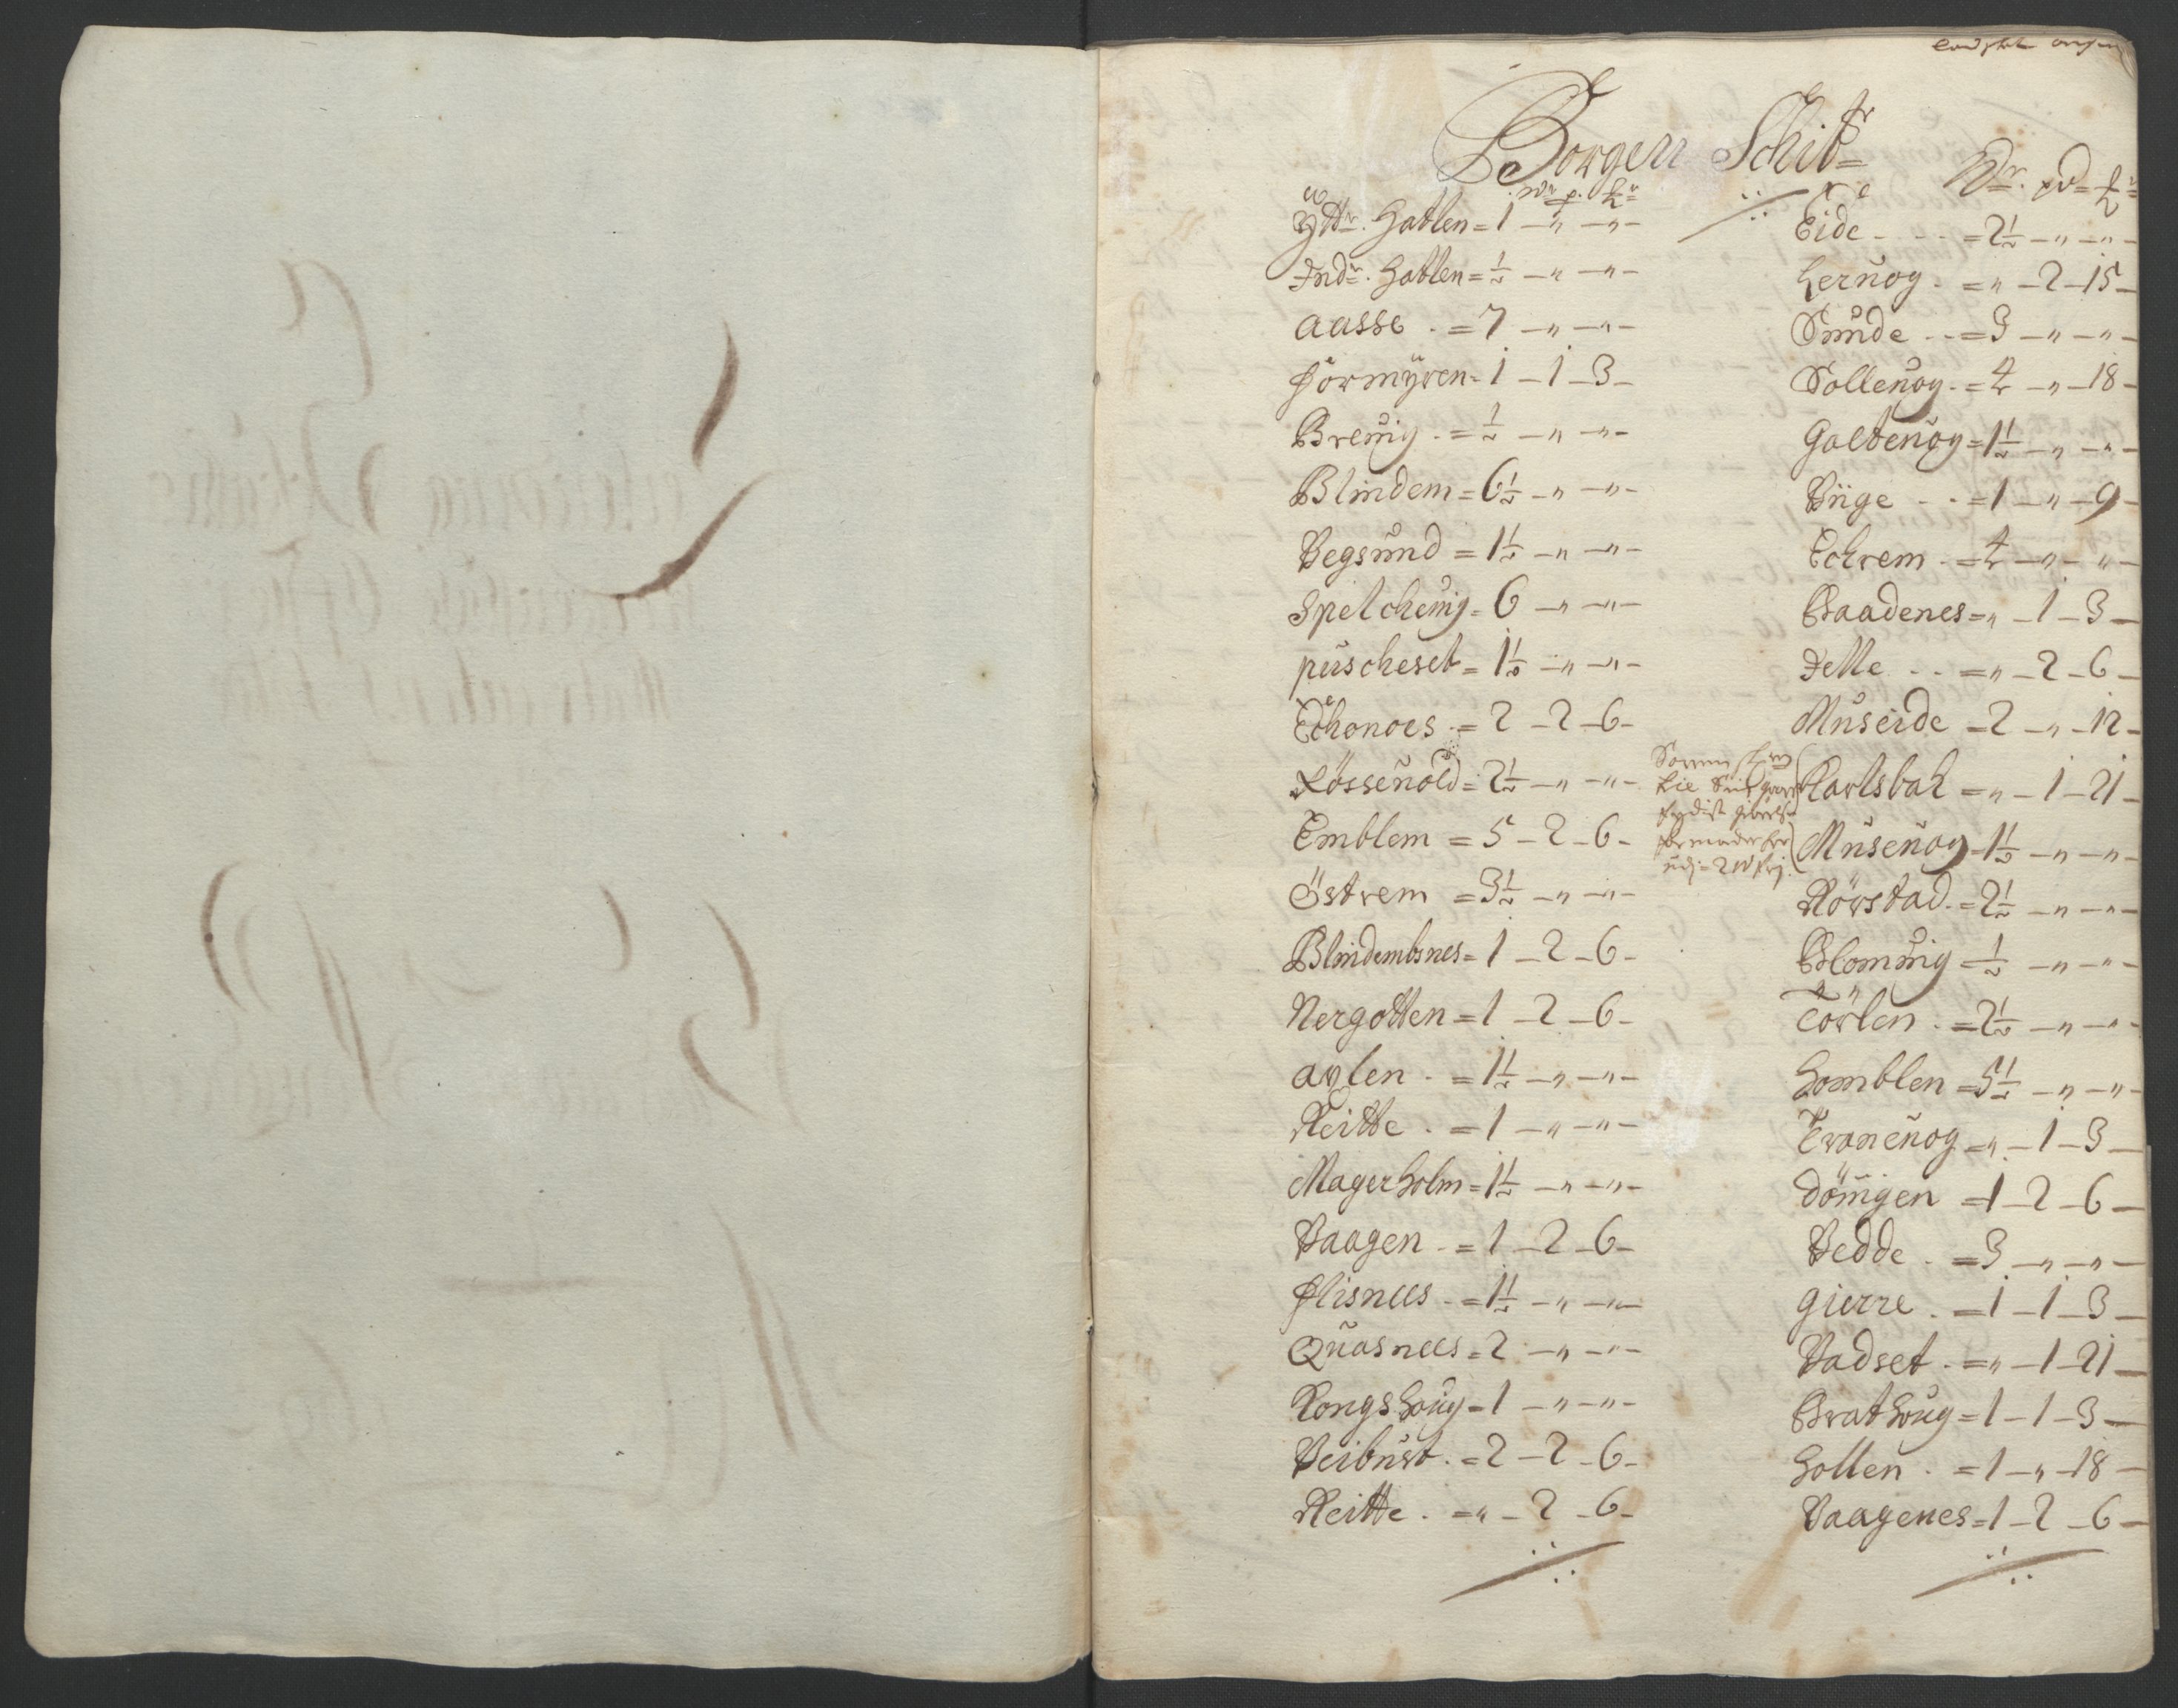 Borgen Schibr
W p.
Yttr. Hatlen = 1 – " – " –
Indr. Hatlen = ½ – " – " –
Aasse . = 7 – " – " –
Formÿren = 1 – 1 – 3 –
Breuig . = ½ – " – " –
Blindem = 6½ – " – " –
Vegsund = 1½ – " – " –
Spelcheuig = 6 – " – " –
puscheset = 1½ – " – " –
Echonoes . = 2 – 2 – 6 –
Rösseuold = 2½ – " – " –
Emblem = 5 – 2 – 6 –
Östrem = 3½ – " – " –
Blindembsnes = 1 – 2 – 6 –
Nergotten = 1 – 2 – 6 –
Aqlen . = 1½ – " – " –
Reitte . = 1 – " – " –
Magerholm = 1½ – " – " –
Vaagen . = 1 – 2 – 6 –
Flisnees . = 1½ – " – " –
Quasnees = 2 – " – " –
Kongshoug = 1 – " – " –
Veibust . = 2 – 2 – 6 –
Reitte . = " – 2 – 6 –
Eide . . . = 2½ – " – " –
Hernog . = " – 2 – 15 –
Sunde . . = 3 – " – " –
Solleuog . = 4 – " – 18 –
Galteuog = 1½ – " – " –
Viige . . = 1 – " – 9 –
Echrem . = 4 – " – " –
Baadenes = " – 1 – 3 –
Felle . . = " – 2 – 6 –
Museide = 2 – " – 12 –
Karlsbak = " – 1 – 21 –
Museuog = 1½ – " – " –
Rörstad . = 2½ – " – " –
Blomuig = ½ – " – " –
Törlen . = 2½ – " – " –
Homblen = 5½ – " – " –
Traneuog = " – 1 – 3 –
Döuigen = 1 – 2 – 6 –
Vedde . = 3 – " – " –
Gierre . = 1 – 1 – 3 –
Vadset . = " – 1 – 21 –
Brathoug = 1 – 1 – 3 –
Hollen . = 1 – " – 18 –
Vaagenes = 1 – 2 – 6 –